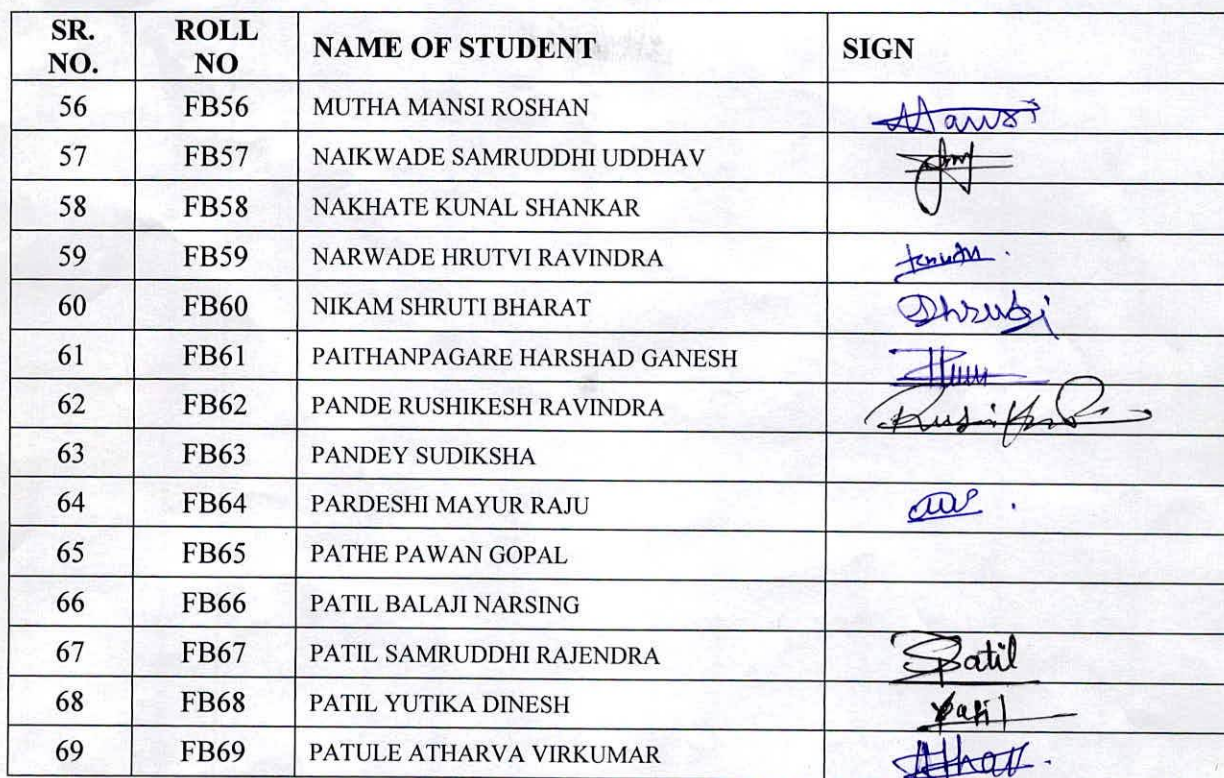 SR. NO. ROLL NO NAME OF STUDENT SIGN
56 FB56 MUTHA MANSI ROSHAN Mansi
57 FB57 NAIKWADE SAMRUDDHI UDDHAV
58 FB58 NAKHATE KUNAL SHANKAR
59 FB59 NARWADE HRUTVI RAVINDRA
60 FB60 NIKAM SHRUTI BHARAT Shruti
61 FB61 PAITHANPAGARE HARSHAD GANESH
62 FB62 PANDE RUSHIKESH RAVINDRA
63 FB63 PANDEY SUDIKSHA
64 FB64 PARDESHI MAYUR RAJU
65 FB65 PATHE PAWAN GOPAL
66 FB66 PATIL BALAJI NARSING
67 FB67 PATIL SAMRUDDHI RAJENDRA SPatil
68 FB68 PATIL YUTIKA DINESH
69 FB69 PATULE ATHARVA VIRKUMAR